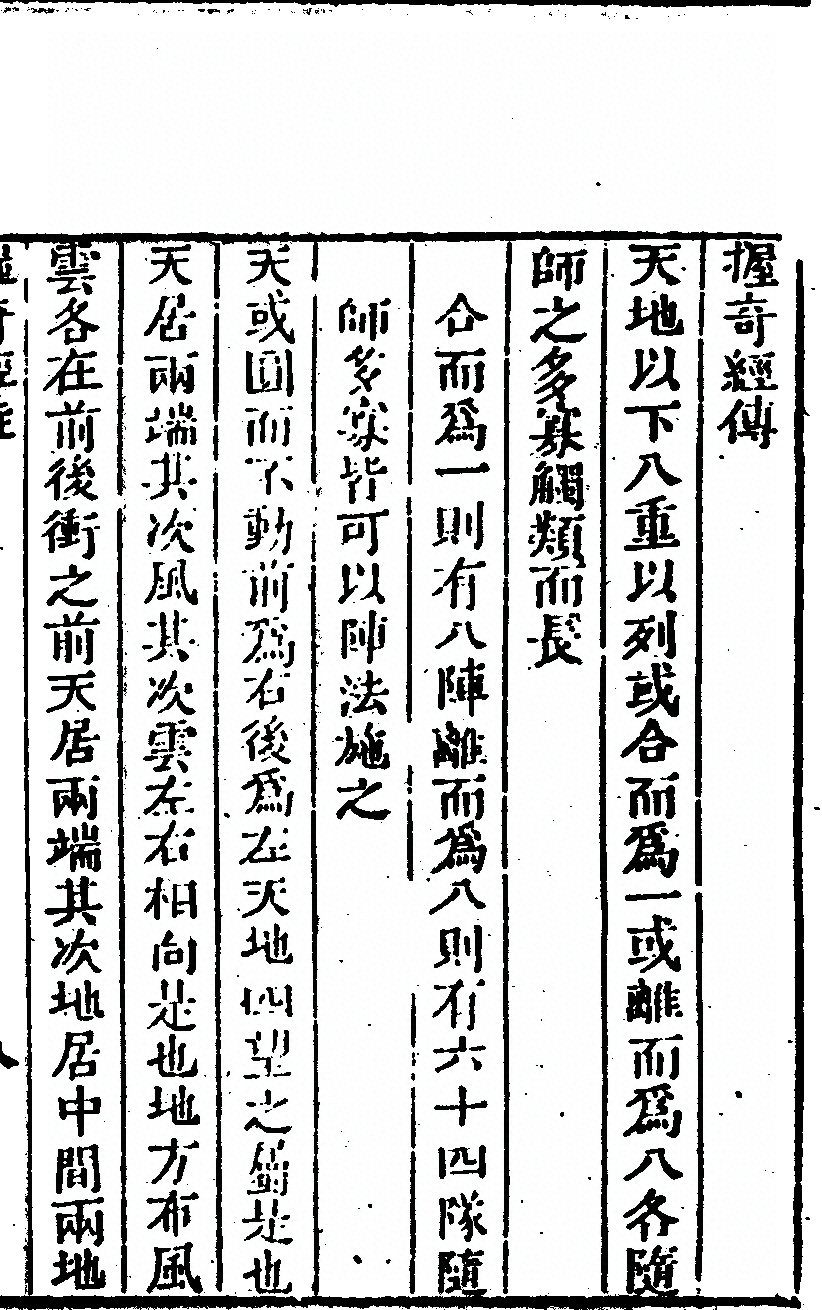 握奇經傳
天地以下八重以列或合而爲一或離而爲八各隨
師之多寡觸類而長
合而爲一則有八陣離而爲八則有六十四隊隨
師多寡皆可以陣法施之
天或圓而不動前爲右後爲左天地四望之屬是也
天居兩端其次風其次雲左右相向是也地方布風
雲各在前後衝之前天居兩端其次地居中間兩地